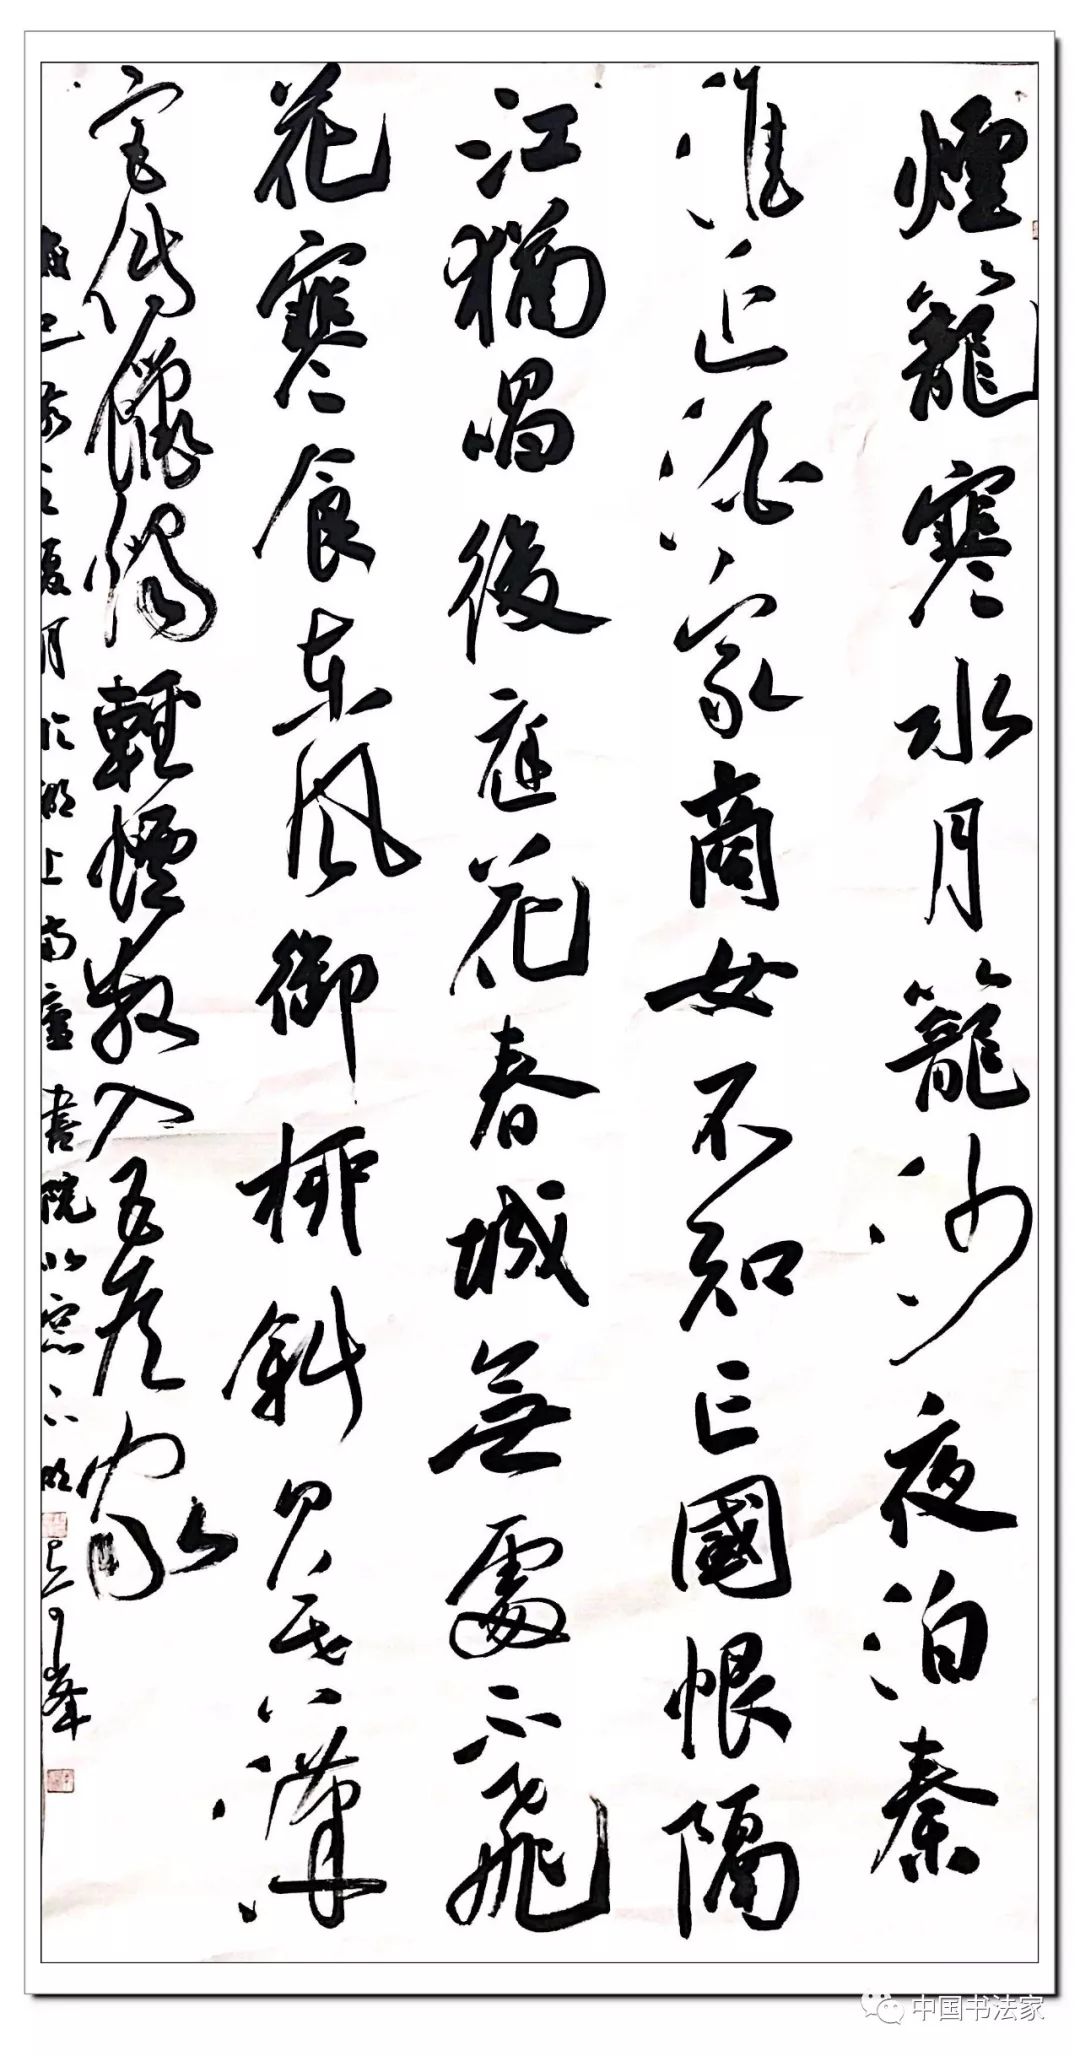 煙籠寒水月籠沙夜泊秦
淮近酒家商女不知亡國恨隔
江猶唱後庭花春城無處不飛
花寒食東風御柳斜日暮漢
宮傳蠟燭輕煙散入五侯家
夏月於湖上南廬書院北窗下
中国书法家